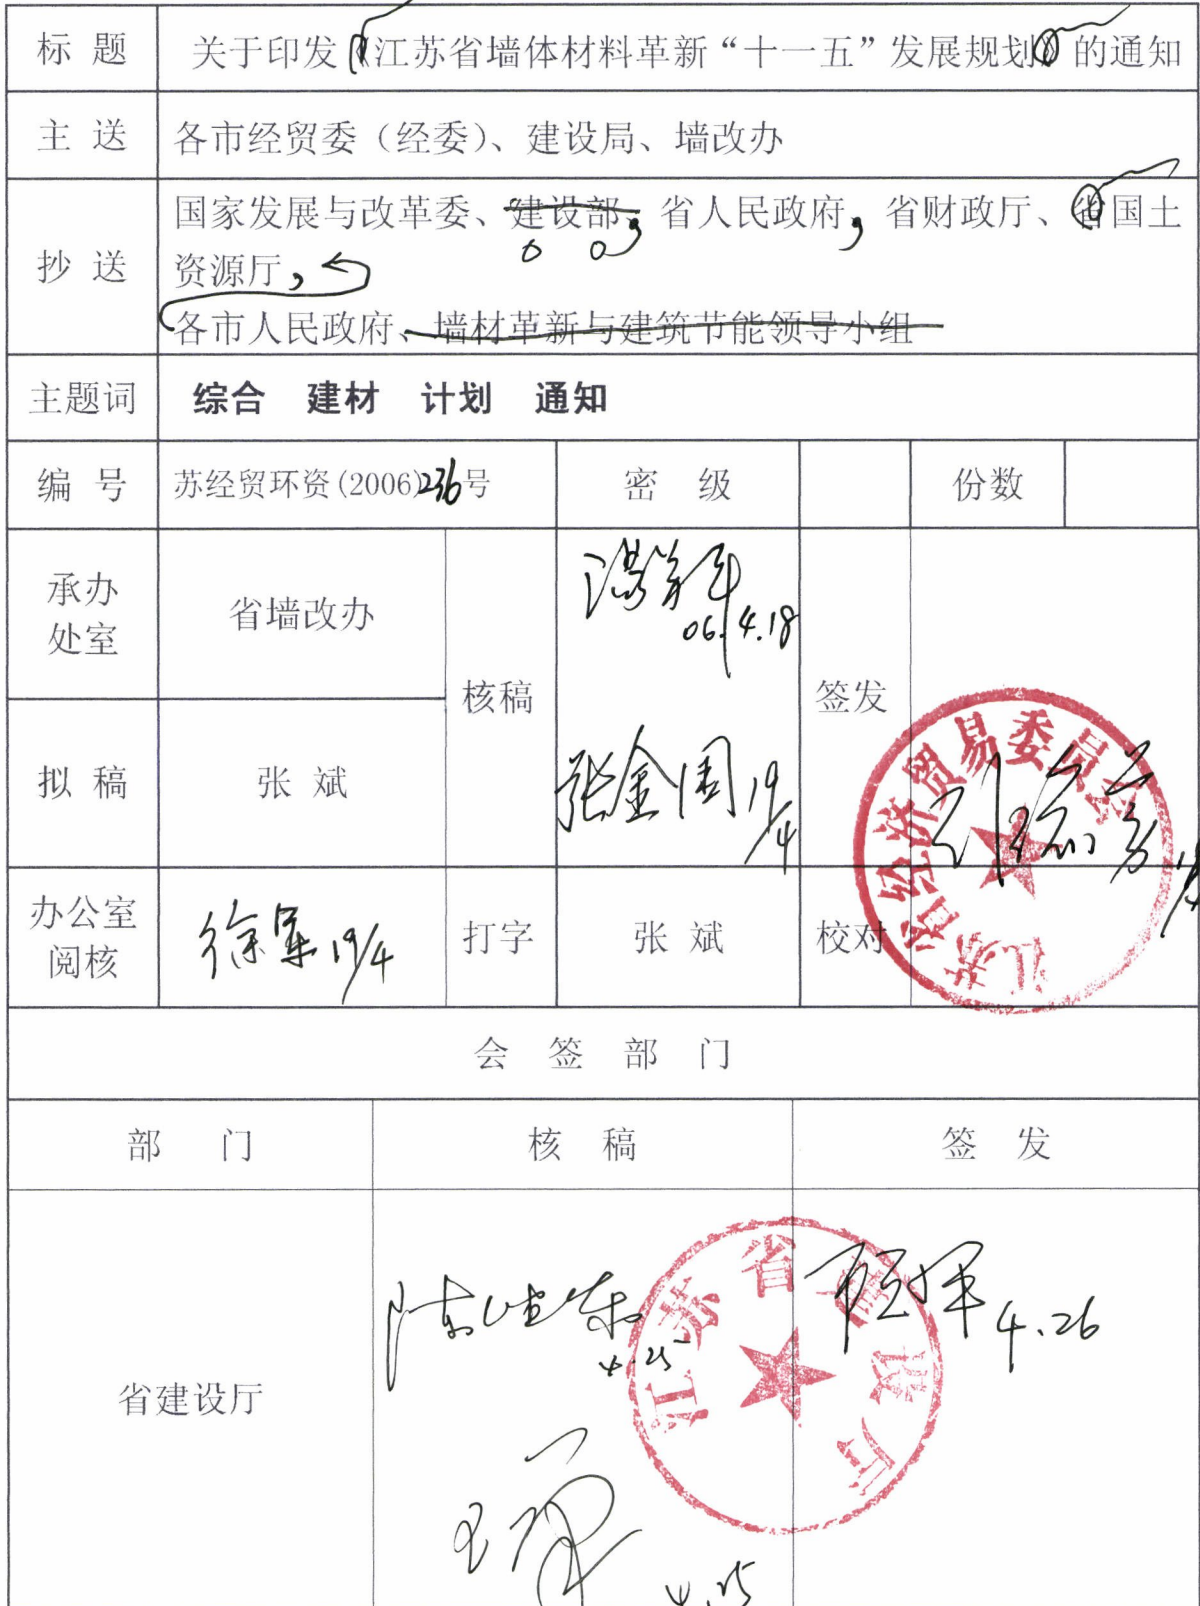 标 题 关于印发《江苏省墙体材料革新“十一五”发展规划》的通知
主 送 各市经贸委（经委）、建设局、墙改办
抄 送 国家发展与改革委、建设部，省人民政府，省财政厅、省国土
资源厅，
各市人民政府、墙材革新与建筑节能领导小组
主题词 综合 建材 计划 通知
编 号 苏经贸环资(2006)236号 密 级 份数
承办
处室 省墙改办 核稿 06.4.18 签发
拟 稿 张 斌 张金周 19/4
江苏省经济贸易委员会
办公室
阅核 徐军 19/4 打字 张 斌 校对
会 签 部 门
部 门 核 稿 签 发
省建设厅 4.25 4.26
江苏省建设厅
4.25